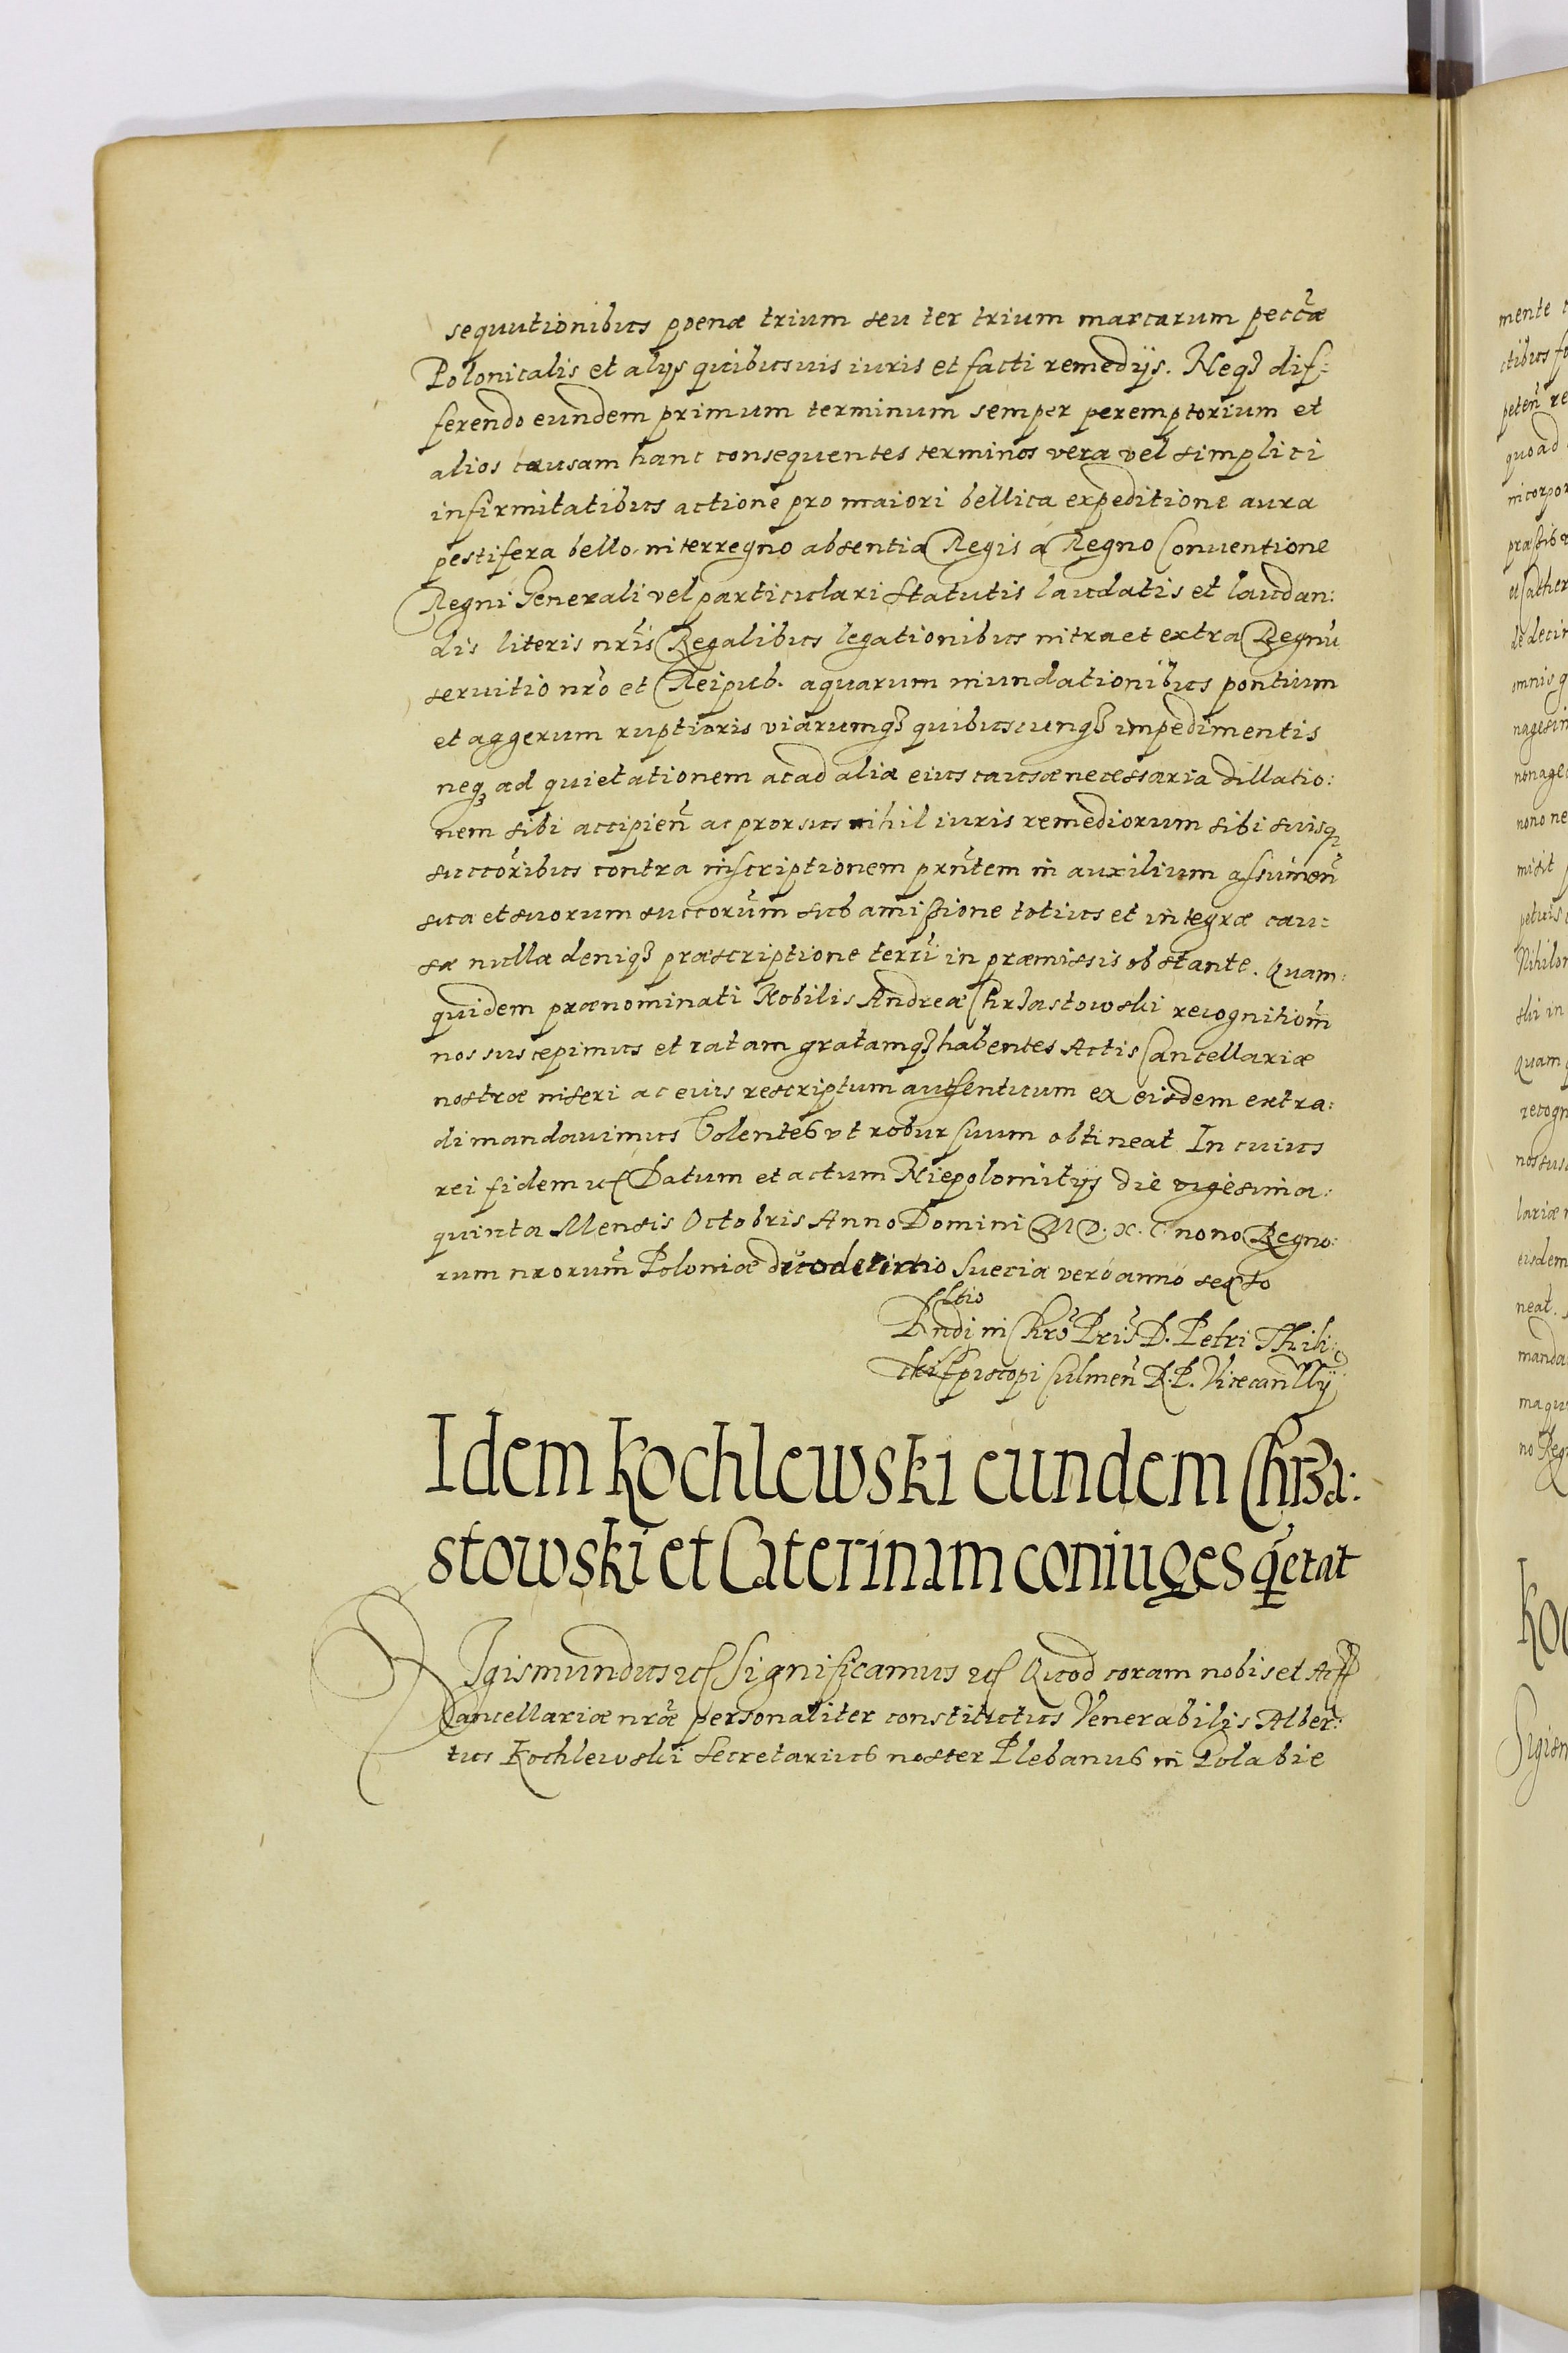 sequutionibus poenæ trium seu ter trium marcarum pecc̃æ
Polonicalis et alijs quibusuis iuris et facti remedijs. Neqꝫ dif:
ferendo eundem primum terminum semper peremptorium et
alios causam hanc consequentes terminos vera vel simplici
infirmitatibus actione pro maiori bellica expeditione aura
pestifera bello interregno absentia Regis à Regno Conuentione
Regni Generali vel particulari statutis laudatis et laudan:
dis literis nr̃is Regalibus legationibus intra et extra Regnũ
seruitio nr̃o et Reipub. aquarum inundationibus pontium
et aggerum ruptioris viarumqꝫ quibuscunqꝫ impedimentis
neqꝫ ad quietationem ac ad alia eius causæ necessaria dillatio:
nem sibi accipieñ ac prorsus nihil iuris remediorum sibi suisqꝫ
succõribus contra inscriptionem prñtem in auxilium assumeñ
sua et suorum succorũm sub amissione totius et integræ cau:
sæ nulla deniqꝫ præscriptione terrĩ in præmissis obstante. Quam:
quidem prænominati Nobilis Andreæ Chrzastowski recognitioñm
nos suscepimus et ratam gratamqꝫ habentes Actis Cancellariæ
nostræ inseri ac eius rescriptum authenticum ex eisdem extra:
di mandauimus Volentes vt robur suum obtineat In cuius
rei fidem ꝛc Datum et actum Niepolomitijs die vigesima:
quinta Mensis Octobris Anno Domini M D. X. C. nono Regno:
rum nrorum̃ Poloniæ duodecimo Sueciæ verò anno sexto
Rltio
Rndi in Chrõ Pris̃ D. Petri Thili:
cki Epis̃copi Culmeñ R. P. Vicecancllrij
Idem Kochlewski eundem Chrza:
stowski et Caterinam coniuges q̃etat
Sigismundus ꝛc Significamus ꝛc Quod coram nobis et Actis
Cancellariæ nr̃æ personaliter constitutus Venerabilis Alber:
tus Kochlewski Secretarius noster Plebanus in Polabie